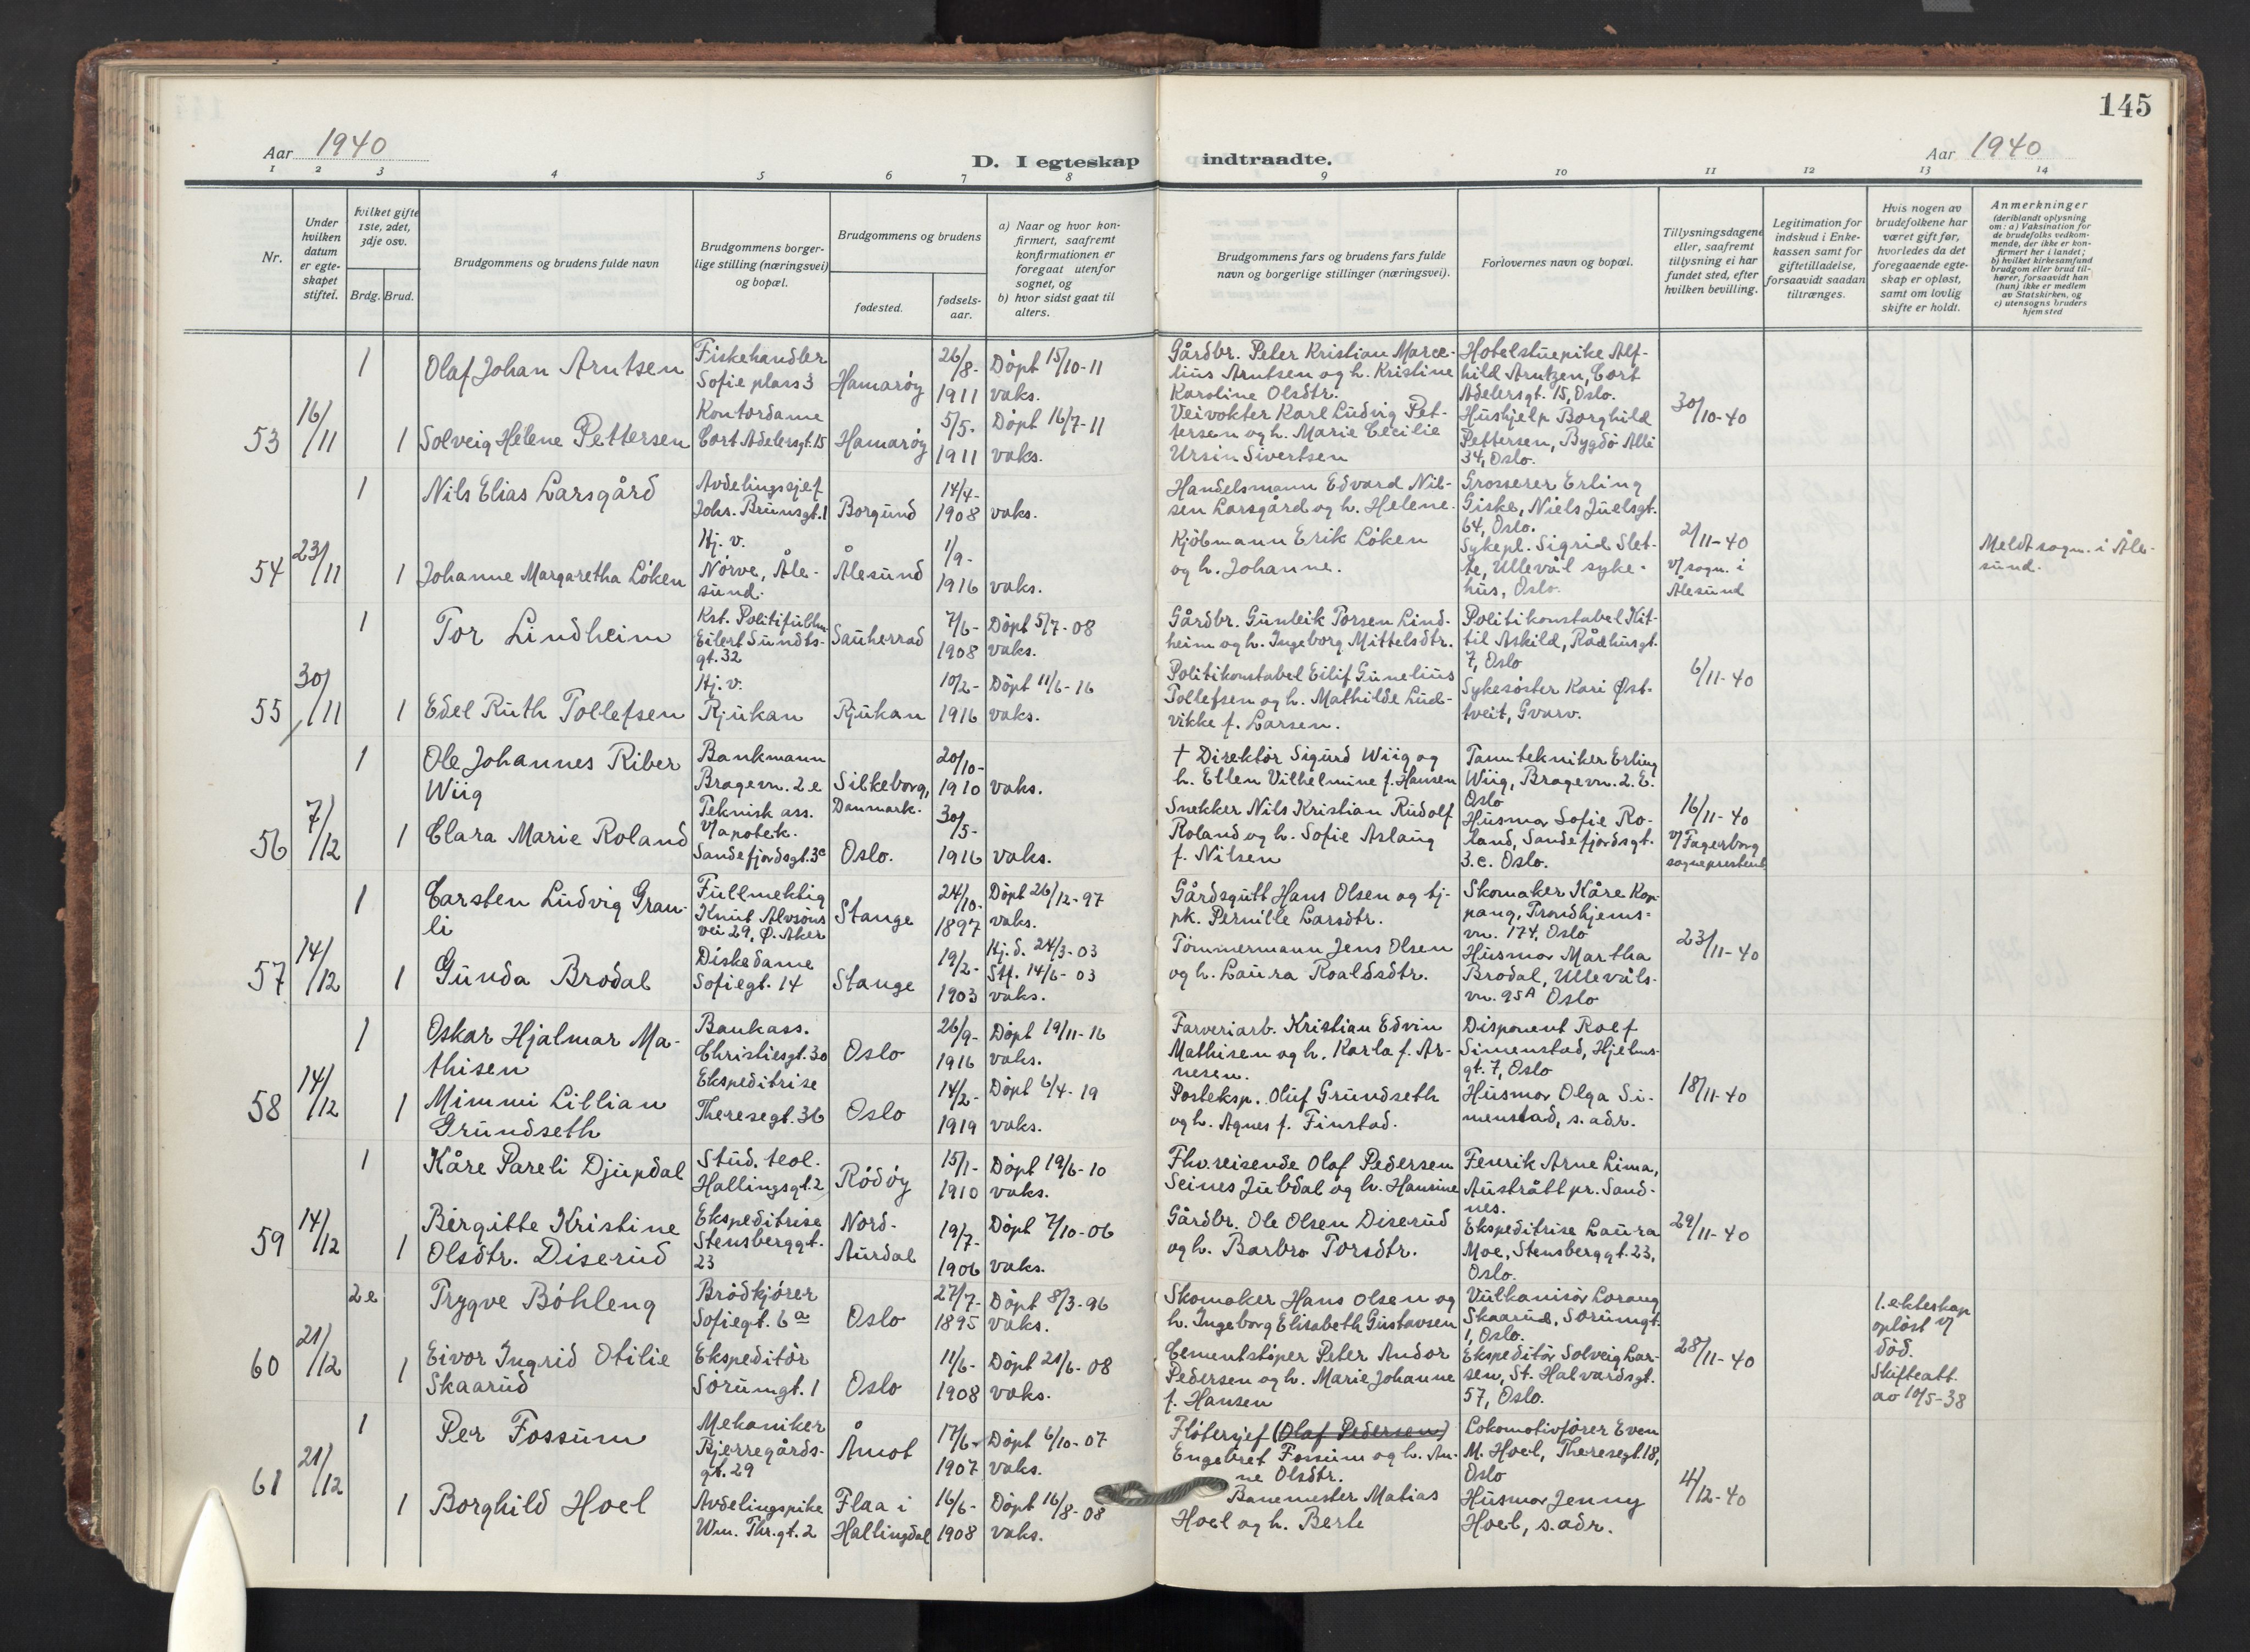 145
Aar 1940
D. I egteskap indtraadte.
Aar 1940
1 2 3 4 5 6 7 8 9 10 11 12 13 14
Nr.
Under hvilken datum er egteskapet stiftet.
Hvilket gifte 1ste, 2det, 3dje osv.
Brdg. Brud.
Brudgommens og brudens fulde navn
Brudgommens borgerlige stilling (næringsvei) og bopæl.
Brudgommens og brudens
fødested.
fødselsaar.
a) Naar og hvor konfirmert, saafremt konfirmationen er foregaat utenfor sognet, og
b) hvor sidst gaat til alters.
Brudgommens fars og brudens fars fulde navn og borgerlige stillinger (næringsvei).
Forlovernes navn og bopæl.
Tillysningsdagene eller, saafremt tillysning ei har fundet sted, efter hvilken bevilling.
Legitimation for indskud i Enkekassen samt for giftetilladelse, forsaavidt saadan tiltrænges.
Hvis nogen av brudefolkene har været gift før, hvorledes da det foregaaende egteskap er opløst, samt om lovlig skifte er holdt.
Anmerkninger
(deriblandt oplysning om: a) Vaksination for de brudefolks vedkommende, der ikke er konfirmert her i landet; b) hvilket kirkesamfund brudgom eller brud tilhører, forsaavidt han (hun) ikke er medlem av Statskirken, og c) utensogns bruders hjemsted
53 16/11
1 Olaf Johan Arntsen
Fiskehandler
Sofie plass 3
Hamarøy
26/8- 1911
Døpt 15/10-11
vaks.
Gårdbr. Peter Kristian Marce-
lius Arntsen og h. Kristine
Karoline Olsdtr.
Hotelstuepike Alf-
hild Arntzen, Cort
Adelersgt. 15, Oslo.
30/10-40
1 Solveig Helene Pettersen
Kontordame
Cort Adelersgt. 15
Hamarøy
5/5- 1911
Døpt 16/7-11
vaks.
Veivokter Karl Ludvig Pet-
tersen og h. Marie Cecilie
Ursin Sivertsen
Hushjelp Borghild
Pettersen, Bygdø Allé
34, Oslo.
54 23/11
1 Nils Elias Larsgård
Avdelingssjef
Johs. Brunsgt. 1
Borgund
14/4- 1908
vaks.
Handelsmann Edvard Nil-
sen Larsgård og h. Helene.
Grosserer Erling
Giske, Niels Juelsgt.
64, Oslo.
2/11-40
v/ sogn. i
Ålesund
Meldt sogn. i Åle-
sund.
1 Johanne Margaretha Løken
Hj. v.
Nørve, Åle-
sund.
Ålesund
1/9- 1916
vaks.
Kjøbmann Erik Løken
og h. Johanne.
Sykepl. Sigrid Slet-
te, Ullevål syke-
hus, Oslo.
55 30/11
1 Tor Lindheim
Kst. Politifullm.
Eilert Sundts-
gt. 32
Sauherrad
7/6- 1908
Døpt 5/7-08
vaks.
Gårdbr. Gunleik Torsen Lind-
heim og h. Ingeborg Mittelsdtr.
Politikonstabel Kit-
til Askild, Rådhusgt.
7, Oslo
6/11-40
1 Edel Ruth Tollefsen
Hj. v.
Rjukan
Rjukan
10/2- 1916
Døpt 11/6-16
vaks.
Politikonstabel Eilif Gunelius
Tollefsen og h. Mathilde Lud-
vikke f. Larsen.
Sykesøster Kari Øst-
tveit, Gvarv.
56 7/12
1 Ole Johannes Riber
Wiig
Bankmann
Bragevn. 2 e
Silkeborg,
Danmark.
20/10- 1910
vaks.
† Direktør Sigurd Wiig og
h. Ellen Vilhelmine f. Hansen
Tanntekniker Erling
Wiig, Bragevn. 2. E.
Oslo
16/11-40
v/ Fagerborg
sogneprestemb.
1 Clara Marie Roland
Teknisk ass.
v/ apotek.
Sandefjordsgt. 3c
Oslo.
30/5- 1916
vaks.
Snekker Nils Kristian Rudolf
Roland og h. Sofie Aslaug
f. Nilsen
Husmor Sofie Ro-
land, Sandefjordsgt.
3.c. Oslo.
57 14/12
1 Carsten Ludvig Gran-
li
Fullmektig
Knut Alvsøns
vei 29, Ø. Aker
Stange
24/10- 1897
Døpt 26/12-97
vaks.
Gårdsgutt Hans Olsen og tj-
pk. Pernille Larsdtr.
Skomaker Kåre Kop-
pang, Trondhjems-
vn. 174, Oslo
23/11-40
1 Gunda Brodal
Diskedame
Sofiegt. 14
Stange
19/2- 1903
Hj.d. 24/3-03
Stf. 14/6-03
vaks.
Tømmermann Jens Olsen
og h. Laura Roaldsdtr.
Husmor Martha
Brodal, Ullevåls-
vn. 95A Oslo
58 14/12
1 Oskar Hjalmar Ma-
thisen
Bankass.
Christiesgt. 30
Oslo
26/9- 1916
Døpt 19/11-16
vaks.
Farveriarb. Kristian Edvin
Mathisen og h. Karla f. Ar-
nesen.
Disponent Rolf
Simenstad, Hjelms-
gt. 7, Oslo
18/11-40
1 Mimmi Lillian
Grundseth
Ekspeditrise
Theresegt. 36
Oslo
14/2- 1919
Døpt 6/4-19
vaks.
Posteksp. Oluf Grundseth
og h. Agnes f. Finstad.
Husmor Olga Si-
menstad, s. adr.
59 14/12
1 Kåre Pareli Djupdal
Stud. teol.
Hallingsgt. 2
Rødøy
15/1- 1910
Døpt 19/6-10
vaks.
Fhv. reisende Olaf Pedersen
Seines Juldal og h. Hansine
Fenrik Arne Lima,
Austrått pr. Sand-
nes.
29/11-40
1 Birgitte Kristine
Olsdtr. Diserud
Ekspeditrise
Stensberggt.
23
Nord-
Aurdal
19/7- 1906
Døpt 7/10-06
vaks.
Gårdbr. Ole Olsen Diserud
og h. Barbro Torsdtr.
Ekspeditrise Laura
Moe, Stensberggt. 23,
Oslo.
60 21/12
2e Trygve Bøhleng
Brødkjører
Sofiegt. 6a
Oslo
27/7- 1895
Døpt 8/3-96
vaks.
Skomaker Hans Olsen og
h. Ingeborg Elisabeth Gustavsen
Vulkanisør Lorang
Skaarud, Sørumgt.
1, Oslo.
28/11-40
1. ekteskap
opløst v/
død.
Skifteatt.
av 10/5-38
1 Eivor Ingrid Otilie
Skaarud
Ekspeditør
Sørumgt. 1
Oslo
11/6- 1908
Døpt 21/6-08
vaks.
Cementstøper Peter Andor
Pedersen og h. Marie Johanne
f. Hansen
Ekspeditør Solveig Lar-
sen, St. Halvardsgt.
57, Oslo.
61 21/12
1 Per Fossum
Mekaniker
Bjerregårds-
gt. 29
Åmot
17/6- 1907
Døpt 6/10-07
vaks.
Fløtersjef (Olaf Pedersen)
Engebret Fossum og h. An-
ne Olsdtr.
Lokomotivfører Even
M. Hoel, Theresegt. 18,
Oslo
4/12-40
1 Borghild Hoel
Avdelingspike
Wm. Thr.gt. 2
Flaa i
Hallingdal
16/6- 1908
Døpt 16/8-08
vaks.
Banemester Matias
Hoel og h. Berte
Husmor Jenny
Hoel, s. adr.